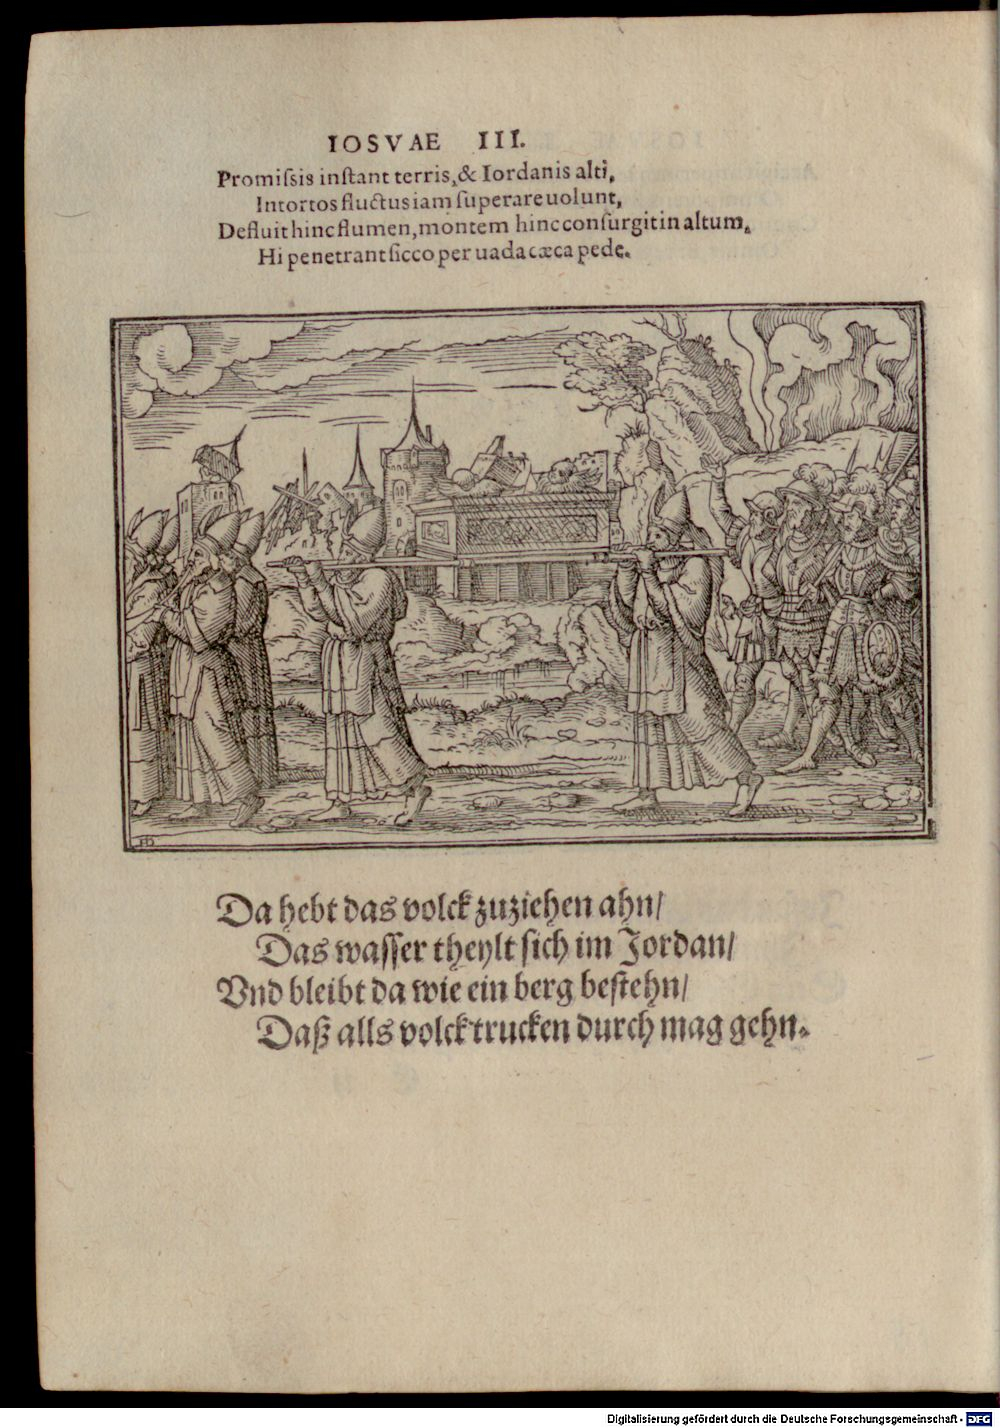 IOSVAE III.
Promiſsis inſtant terris, & Iordanis alti,
Intortos fluctus iam ſuperare uolunt,
Defluit hinc flumen, montem hinc conſurgit in altum,
Hi penetrant ſicco per uada cæca pede.
Da hebt das volck zuziehen ahn/
Das waſſer theylt ſich im Jordan/
Vnd bleibt da wie ein berg beſtehn/
Daß alls volck trucken durch mag gehn.
Digitalisierung gefördert durch die Deutsche Forschungsgemeinschaft - DFG